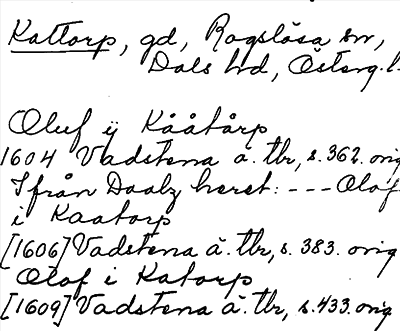 Kattorp, gd, Rogslösa sn,
Dals hd, Österg. l.
Oluf ÿ Kååtårp
1604 Vadstena ä. tbr, s. 362. orig
Ifrån Daalz heret: --- Olof
i Kaatorp
[1606] Vadstena ä. tbr, s. 383. orig
Olof i Katorp
[1609] Vadstena ä. tbr, s. 433. orig